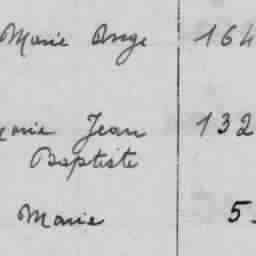 Marie Ange 164
Marie Jean 132
Baptiste
Marie 5